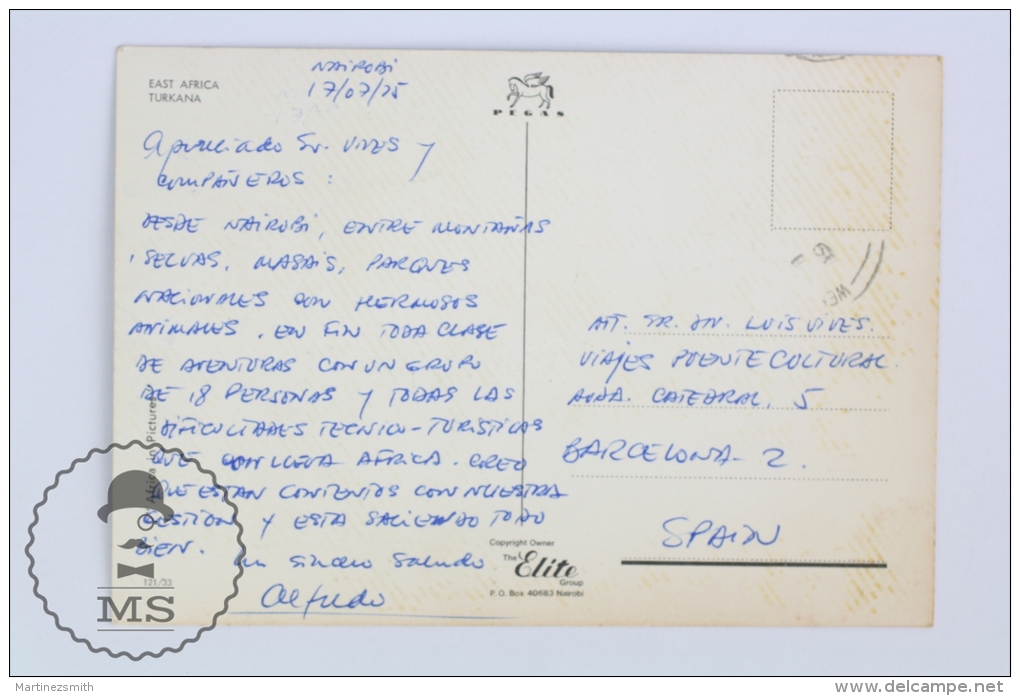 EAST AFRICA
TURKANA
NAIROBI
17/07/75
PEGAS
Apreciado Sr. VIVES y
COMPAÑEROS :
DESDE NAIROBI, ENTRE MONTAÑAS
, SELVAS, MASAIS, PARQUES
NACIONALES CON HERMOSOS
ANIMALES. EN FIN TODA CLASE
DE AVENTURAS CON UN GRUPO
DE 18 PERSONAS Y TODAS LAS
DIFICULTADES TECNICO-TURISTICAS
QUE CONLLEVA AFRICA. CREO
QUE ESTAN CONTENTOS CON NUESTRA
GESTION Y ESTA SALIENDO TODO
BIEN.
Un sincero saludo
Alfredo
ATT. SR. DN. LUIS VIVES.
VIAJES PUENTE CULTURAL.
AVDA. CATEDRAL, 5
BARCELONA-2.
SPAIN
Copyright Owner
The Elite
Group
P.O. Box 40683 Nairobi
Africa in Pictures
121/33
MS
Martinezsmith
delcampe.net